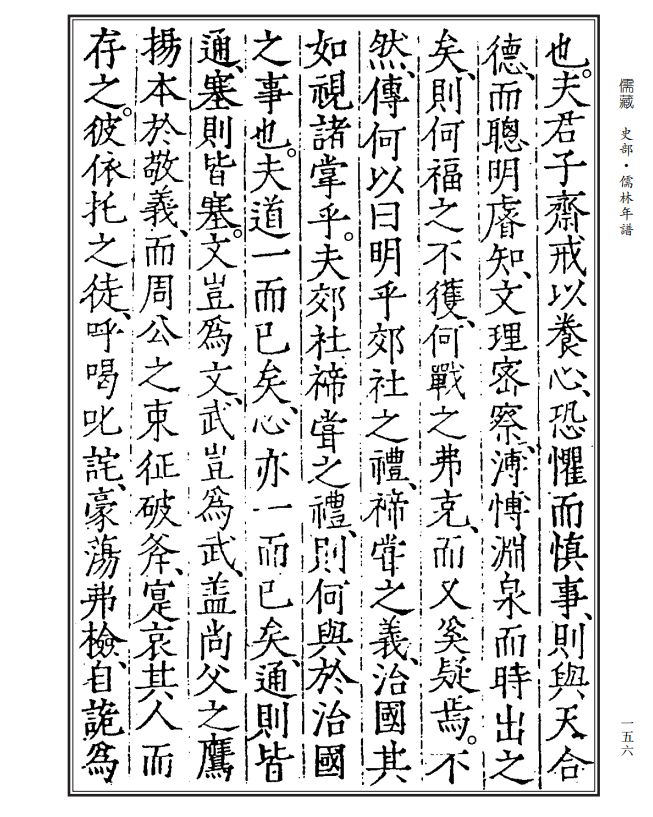 儒藏　史部・儒林年譜
也。夫君子齋戒以養心、恐懼而慎事、則與天合
德、而聰明睿知、文理密察、溥博淵泉而時出之
矣、則何福之不獲、何戰之弗克、而又奚疑焉。不
然、傳何以曰明乎郊社之禮、禘嘗之義、治國其
如視諸掌乎。夫郊社禘嘗之禮、則何與於治國
之事也。夫道一而已矣、心亦一而已矣、通則皆
通、塞則皆塞。文豈為文、武豈為武、蓋尚父之鷹
揚本於敬義、而周公之東征破斧、寔哀其人而
存之。彼依托之徒、呼喝叱詫、豪蕩弗檢、自詭為
一五六